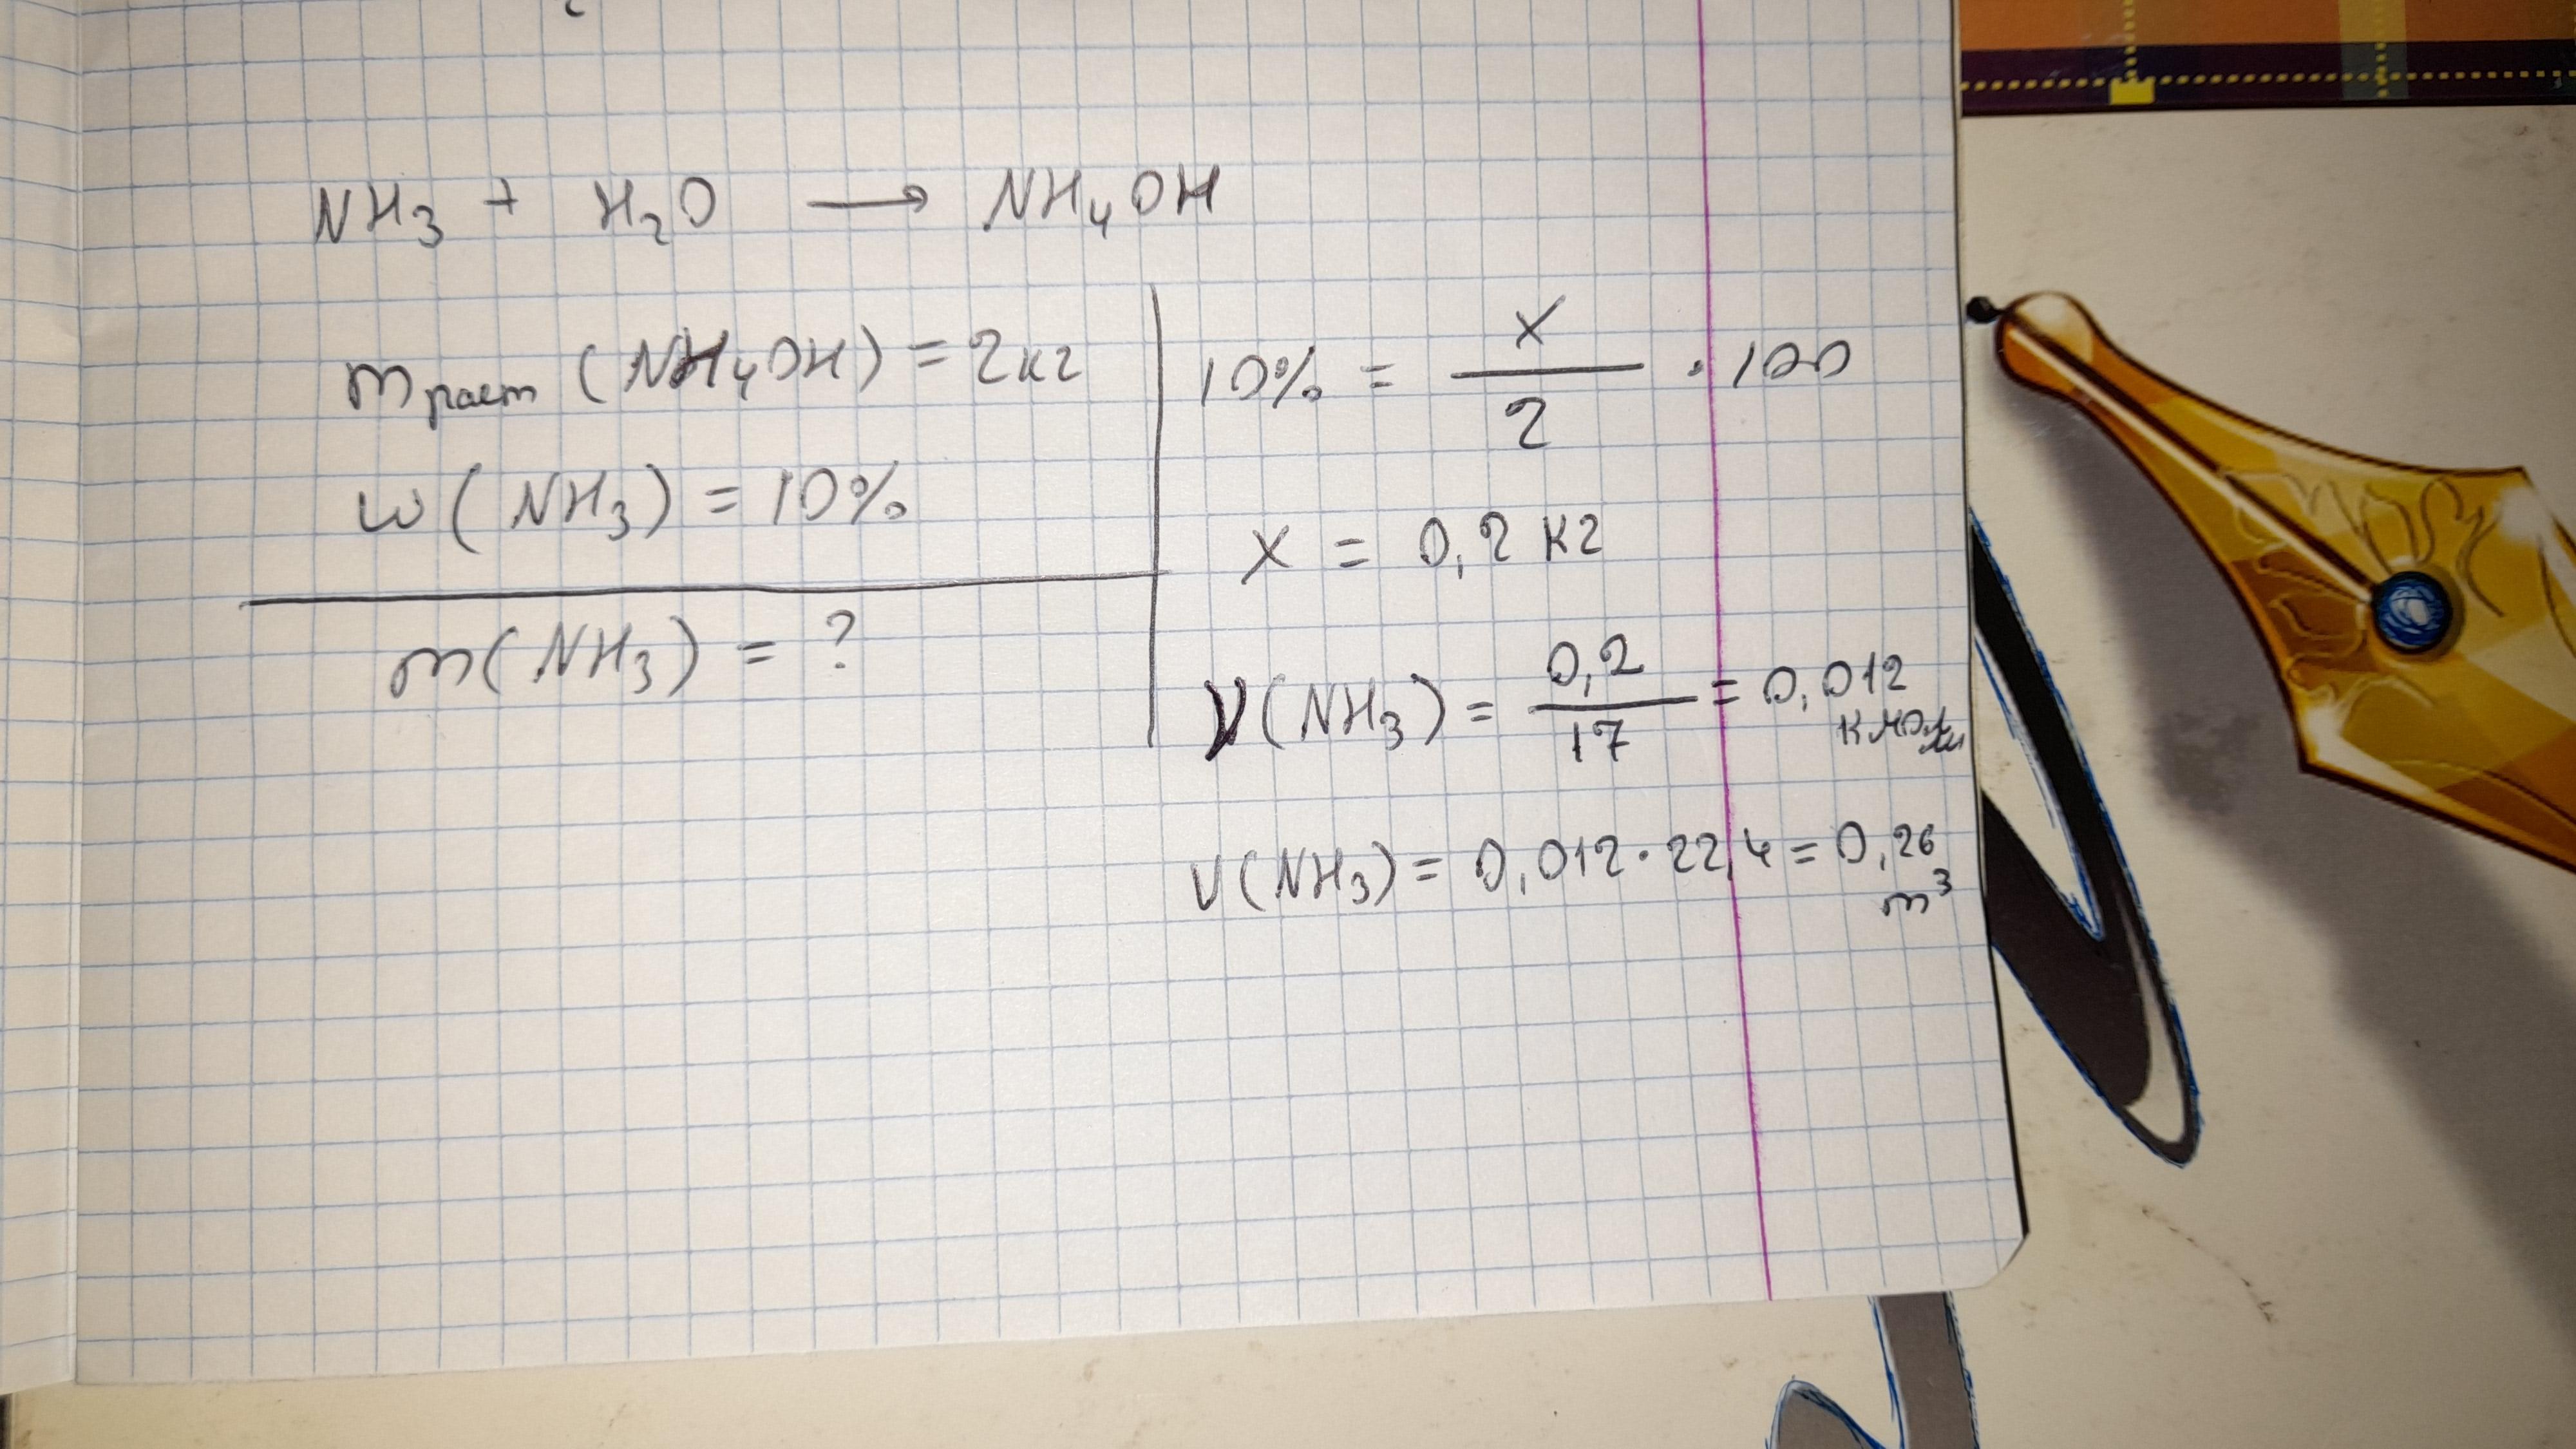 NH₃ + H₂O → NH₄OH
mраст (NH₄OH) = 2кг
ω(NH₃) = 10%
m(NH₃) = ?
10% = x/2 · 100
x = 0,2 кг
ν(NH₃) = 0,2/17 = 0,012 кмоль
V(NH₃) = 0,012 · 22,4 = 0,26 m³